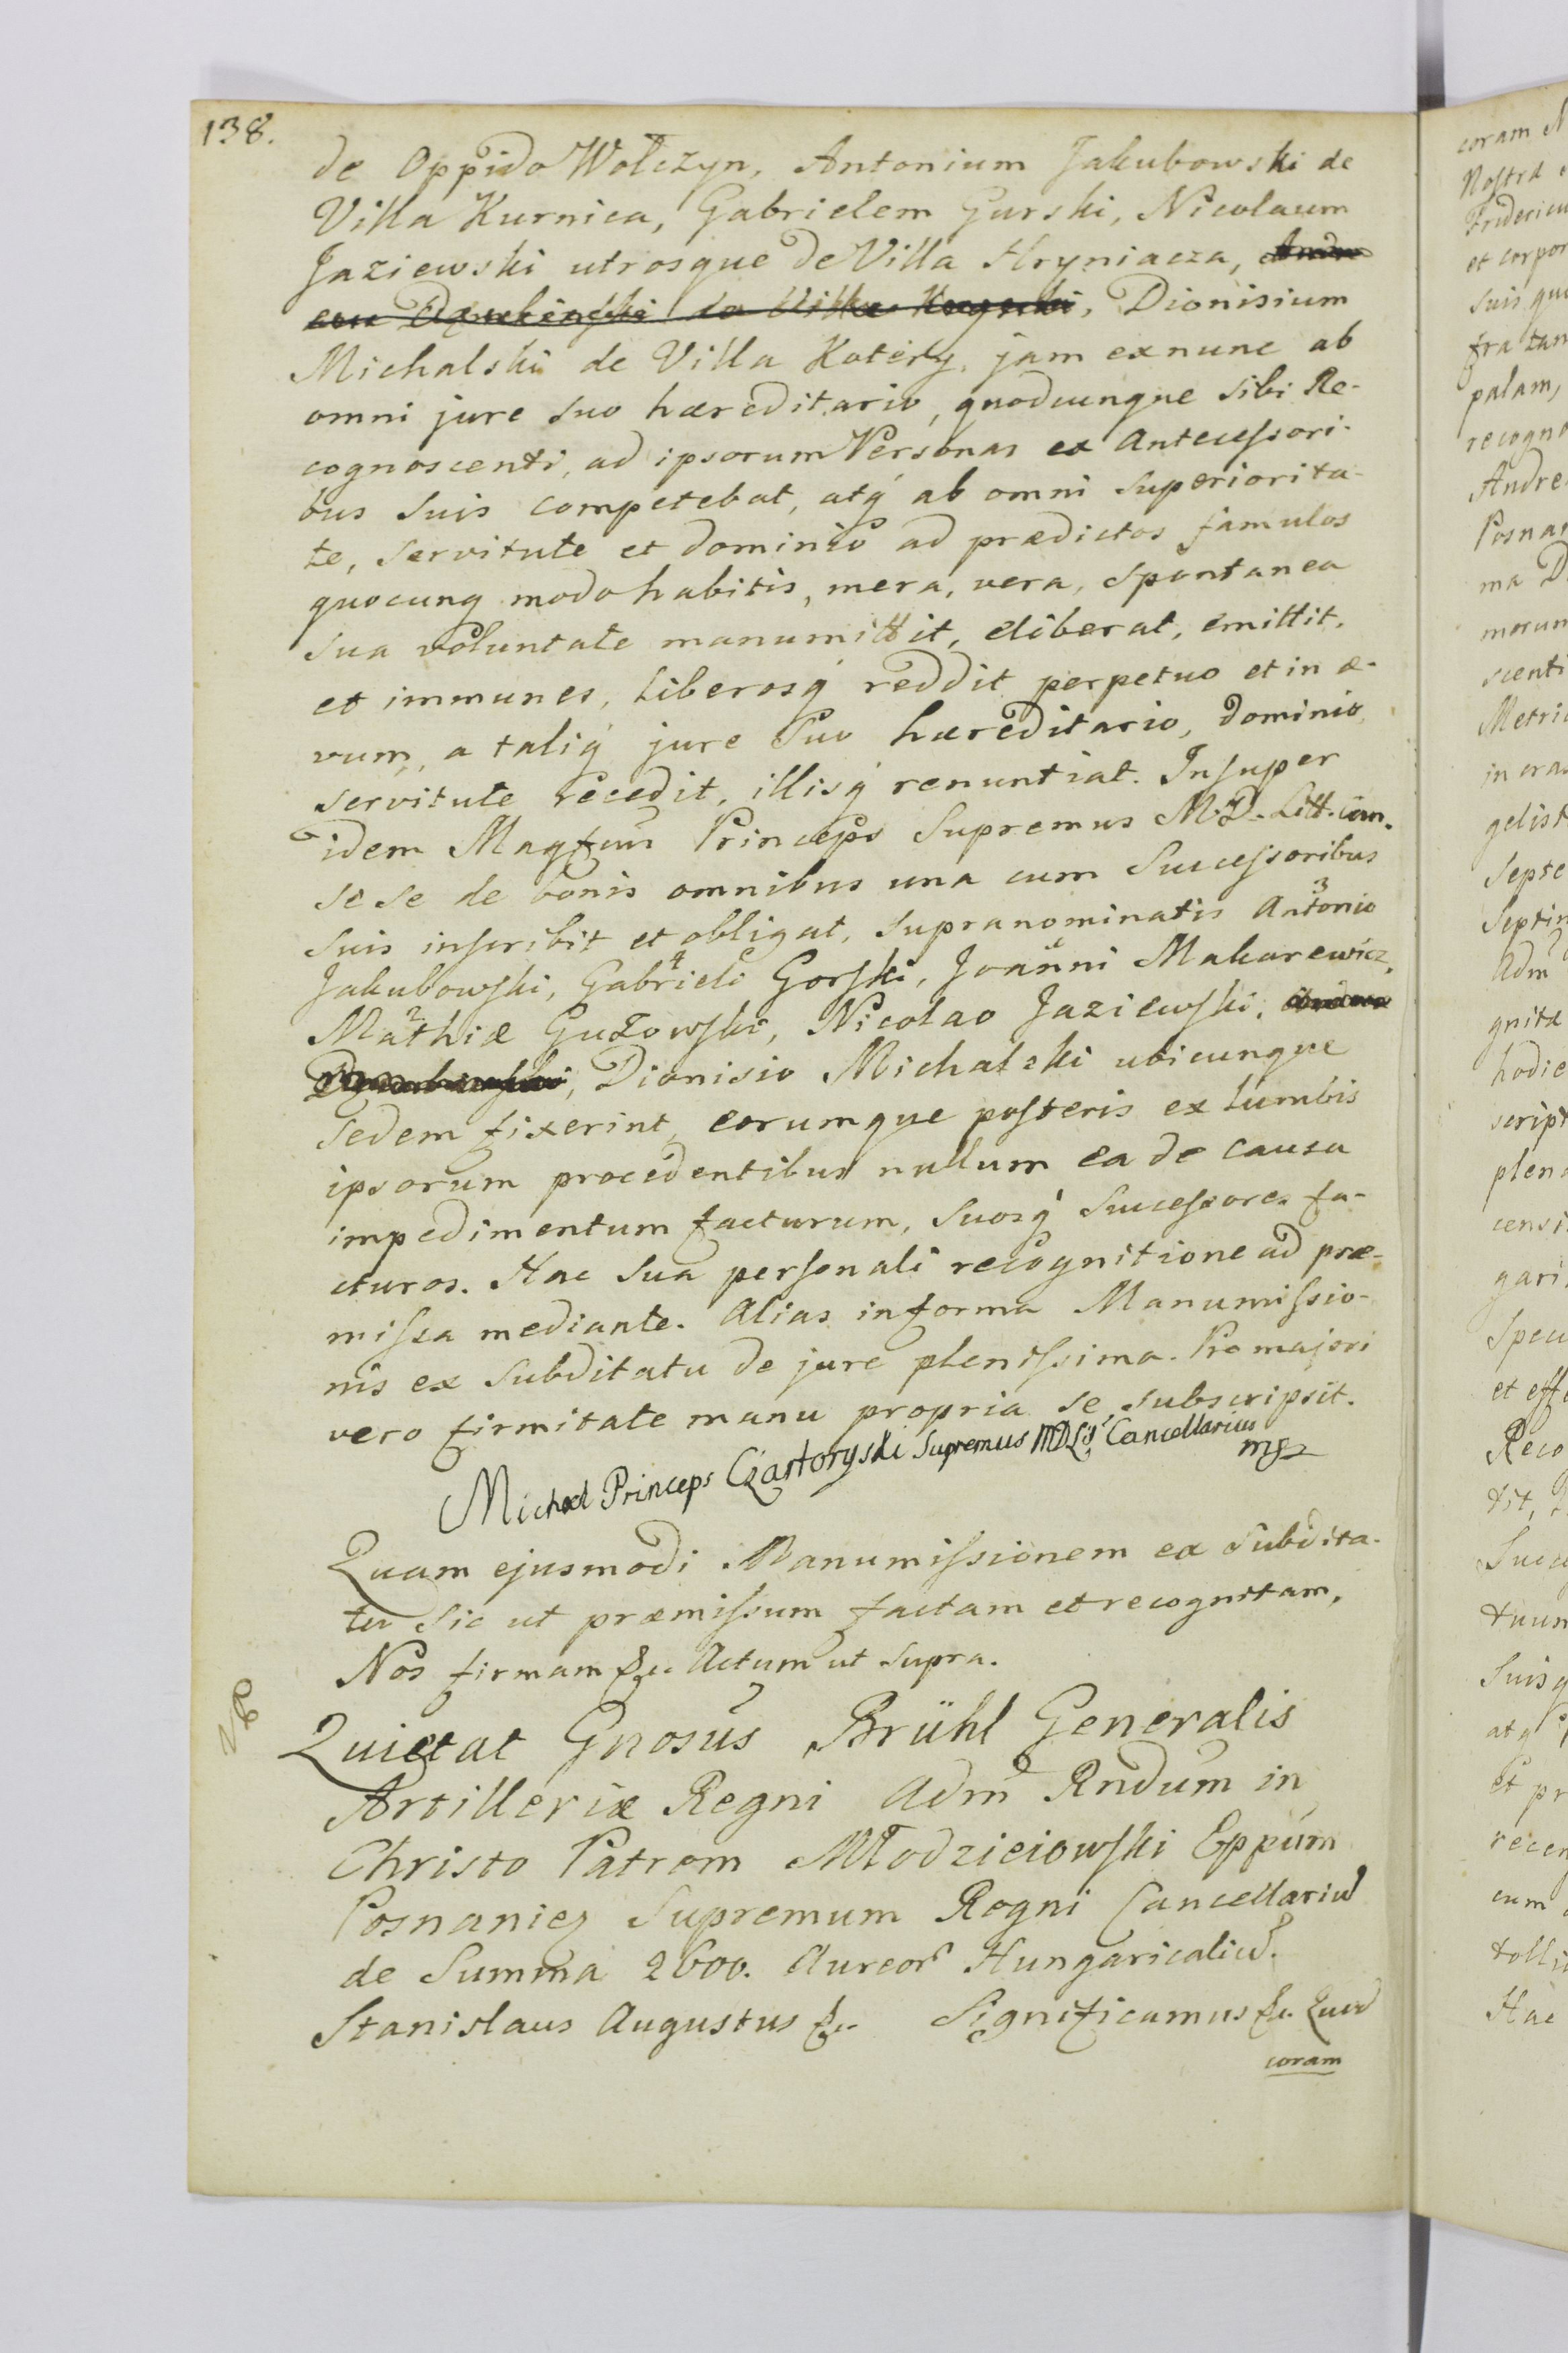 138.
de Oppido Wołczyn, Antonium Jakubowski de
Villa Kurnica, Gabrielem Gurski, Nicolaum
Jaziewski utrosque de Villa Hryniacza,
Dionisium
Michalski de Villa Kotery, jam exnunc ab
omni jure suo hæreditario, quodcunque sibi Re-
cognoscenti, ad ipsorum Personas ex Antecessori-
bus suis competebat, atq́ ab omni superiorita-
te, servitute et dominio ad prædictos famulos
quocunq modo habitis, mera, vera, spontanea
sua voluntate manumittit, eliberat, emittit,
et immunes, Liberosq́ reddit perpetuo et in æ-
vum, a taliq́ jure suo hæreditario, dominio,
servitute recedit, illisq́ renuntiat. Insuper
idem Magfcus Princeps Supremus M.D. Litt. Can.
se se de bonis omnibus una cum Successoribus
suis inscribit et obligat, supranominatis Antonio 3
Jakubowski, Gabrieli 4 Gorski, Joanni Makarewicz,
Mathiæ 2 Gutowski, Nicolao Jaziewski,
Dionisio Michalski ubicunque
sedem fixerint, eorumque posteris ex Lumbis
ipsorum procedentibus nullum ea de causa
impedimentum facturum, suosq́ Successores fa-
cturos. Hac sua personali recognitione ad præ-
missa mediante. Alias in forma Manumissio-
nis ex subditatu de jure plenissima. Pro majori
vero firmitate manu propria se subscripsit.
Michael Princeps Czartoryski Supremus MDL Cancellarius
mp
Quam ejusmodi Manumissionem ex subdita-
tu sic ut præmissum factam et recognitam,
Nos firmam &c. Actum ut supra.
Quietat Gnosus Brühl Generalis
Artilleriæ Regni Adm Rndum in
Christo Patrem Młodzieiowski Eppum
Posnanien Supremum Regni Cancellariu
de Summa 2600. Aureor Hungaricaliu.
Stanislaus Augustus &c. Significamus &c. Quod
coram
coram N
Nostra
Fridericu
et corpor
suis qu
fra tan
palam,
recogno
Andre
Posnan
ma D
morum
scenti
Metri
in cra
gelist
Septe
Septin
Adm
gnita
hodie
script
plena
censi
gari
Speci
et eff
Reco
tit,
Succe
tuum
suisq
atq
et pr
recen
cum
tolli
Hac